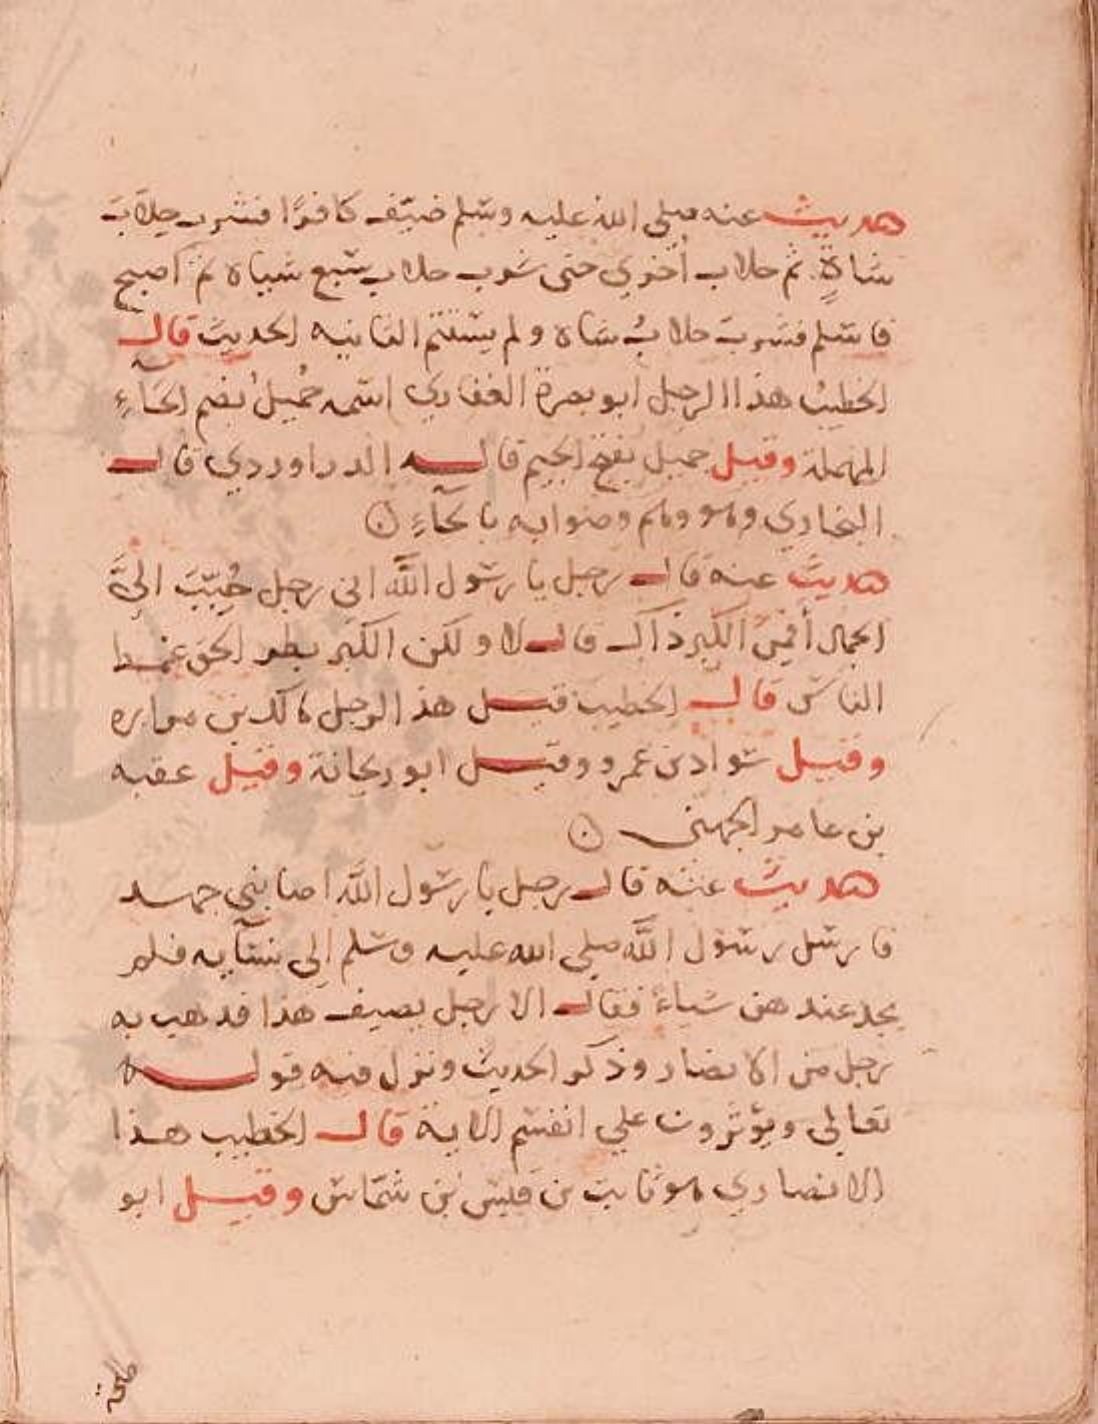 حديث عنه صلى الله عليه وسلم ضيّف كافرًا فشرب حِلابَ
شاةٍ. ثم حلاب أخري حتى شرب حلاب سبع شياه ثم اصبح
فاسلم فشرب حلابُ شاة ولم يستتم الثانيه الحديث قال
الخطيبُ هذا الرجل ابو بصرة الغفاري اسمه حُميلُ بضم الحَآءِ
المهملة وقيل جميل بفتح الجيم قاله الدراوردي قال
البخاري وهو وهم وصوابه بالحَآءِ
حديث عنه قال رجل يا رسول اللَّه اني رجل حُبّبَ اليَّ
الجمال أفمِنَ الكبر ذاك قال لا ولكن الكبر بطر الحق غمط
الناس قال الخطيب قيل هذ الرجل مالك بن مراره
وقيل سواد بن عمرو وقيل ابو ريحانة وقيل عقبه
بن عامر الجهني
حديث عنه قال رجل يا رسول اللَّه اصابني جهد
فارسل رسول اللَّه صلى الله عليه وسلم إلى نسآيه فلم
يجد عند هن شياءً فقال الا رجل يضيف هذا فدهب به
رجل من الانصار وذكر الحديث ونزل فيه قوله
تعالى ويؤثرون علي انفسهم الاية قال الخطيب هذا
الانصاري هو ثابت بن قيس بن شمّاس وقيل ابو
طلحة